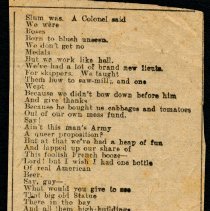 Slum was. A Colonel said
We were
Roses
Born to blush unseen.
We don't get no
Medals
But we work like hell.
We've had a lot of brand new lieuts.
For skippers. We taught
Them how to saw-mill, and one
Wept
Because we didn't bow down before him
And give thanks
Because he bought us cabbages and tomatoes
Out of our own mess fund.
Say!
Ain't this man's Army
A queer proposition?
But at that we've had a heap of fun
And lapped up our share of
This foolish French booze—
Lord! but I wish I had one bottle
Of real American
Beer.
Say, guy—
What would you give to see
That big old Statue
There in the bay
And all them high-buildings